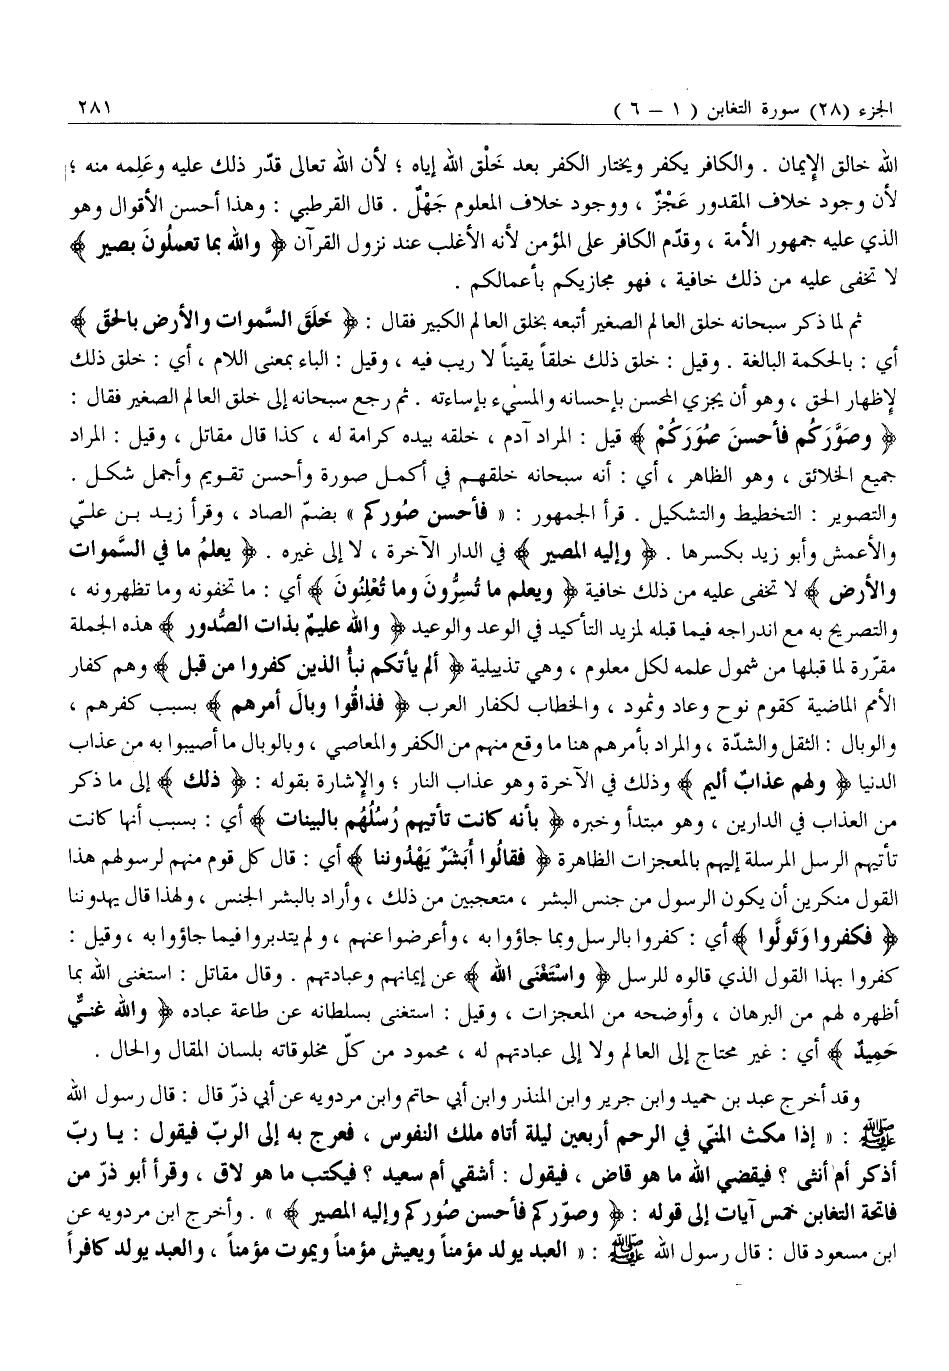 الجزء (٢٨) سورة التغابن ( ١ – ٦ ) ٢٨١
الله خالق الإيمان . والكافر يكفر ويختار الكفر بعد خَلْق الله إياه ؛ لأن الله تعالى قدّر ذلك عليه وعَلِمه منه ؛
لأن وجود خلاف المقدور عَجْزٌ ، ووجود خلاف المعلوم جَهْلٌ . قال القرطبي : وهذا أحسن الأقوال وهو
الذي عليه جمهور الأمة ، وقدّم الكافر على المؤمن لأنه الأغلب عند نزول القرآن ﴿ والله بما تعملُونَ بصير ﴾
لا تخفى عليه من ذلك خافية ، فهو مجازيكم بأعمالكم .
ثم لما ذكر سبحانه خلق العالم الصغير أتبعه بخلق العالم الكبير فقال : ﴿ خَلَقَ السَّموات والأرض بالحقّ ﴾
أي : بالحكمة البالغة . وقيل : خلق ذلك خلقاً يقيناً لا ريب فيه ، وقيل : الباء بمعنى اللام ، أي : خلق ذلك
لإظهار الحق ، وهو أن يجزي المحسن بإحسانه والمسيْء بإساءته . ثم رجع سبحانه إلى خلق العالم الصغير فقال :
﴿ وصَوَّرَكُم فأحسنَ صُوَرَكُمْ ﴾ قيل : المراد آدم ، خلقه بيده كرامة له ، كذا قال مقاتل ، وقيل : المراد
جميع الخلائق ، وهو الظاهر ، أي : أنه سبحانه خلقهم في أكمل صورة وأحسن تقويم وأجمل شكل .
والتصوير : التخطيط والتشكيل . قرأ الجمهور : « فأحسن صُوركم » بضمّ الصاد ، وقرأ زيد بن عليّ
والأعمش وأبو زيد بكسرها . ﴿ وإليه المصير ﴾ في الدار الآخرة ، لا إلى غيره . ﴿ يعلمُ ما في السَّموات
والأرض ﴾ لا تخفى عليه من ذلك خافية ﴿ ويعلم ما تُسِرُّونَ وما تُعْلِنُونَ ﴾ أي : ما تخفونه وما تظهرونه ،
والتصريح به مع اندراجه فيما قبله لمزيد التأكيد في الوعد والوعيد ﴿ والله عليمٌ بذات الصُّدور ﴾ هذه الجملة
مقرّرة لما قبلها من شمول علمه لكل معلوم ، وهي تذييلية ﴿ ألم يأتكم نبأُ الذين كفروا من قبل ﴾ وهم كفار
الأمم الماضية كقوم نوح وعاد وثمود ، والخطاب لكفار العرب ﴿ فذاقُوا وبالَ أمرهم ﴾ بسبب كفرهم ،
والوبال : الثقل والشدّة ، والمراد بأمرهم هنا ما وقع منهم من الكفر والمعاصي ، وبالوبال ما أصيبوا به من عذاب
الدنيا ﴿ ولهم عذابٌ أليم ﴾ وذلك في الآخرة وهو عذاب النار ؛ والإشارة بقوله : ﴿ ذلك ﴾ إلى ما ذكر
من العذاب في الدارين ، وهو مبتدأ وخبره ﴿ بأنه كانت تأتيهم رُسُلُهُم بالبينات ﴾ أي : بسبب أنها كانت
تأتيهم الرسل المرسلة إليهم بالمعجزات الظاهرة ﴿ فقالُوا أَبَشَرٌ يَهْدُوننا ﴾ أي : قال كل قوم منهم لرسولهم هذا
القول منكرين أن يكون الرسول من جنس البشر ، متعجبين من ذلك ، وأراد بالبشر الجنس ، ولهذا قال يهدوننا
﴿ فكفروا وَتَولَّوا ﴾ أي : كفروا بالرسل وبما جاؤوا به ، وأعرضوا عنهم ، ولم يتدبروا فيما جاؤوا به ، وقيل :
كفروا بهذا القول الذي قالوه للرسل ﴿ واسْتَغْنَى الله ﴾ عن إيمانهم وعبادتهم . وقال مقاتل : استغنى الله بما
أظهره لهم من البرهان ، وأوضحه من المعجزات ، وقيل : استغنى بسلطانه عن طاعة عباده ﴿ والله غنيٌّ
حَمِيدٌ ﴾ أي : غير محتاج إلى العالم ولا إلى عبادتهم له ، محمود من كلّ مخلوقاته بلسان المقال والحال .
وقد أخرج عبد بن حميد وابن جرير وابن المنذر وابن أبي حاتم وابن مردويه عن أبي ذرّ قال : قال رسول الله
ﷺ : « إذا مكث المنيّ في الرحم أربعين ليلة أتاه ملك النفوس ، فعرج به إلى الربّ فيقول : يا ربّ
أذكر أم أنثى ؟ فيقضي الله ما هو قاض ، فيقول : أشقي أم سعيد ؟ فيكتب ما هو لاق ، وقرأ أبو ذرّ من
فاتحة التغابن خمس آيات إلى قوله : ﴿ وصوّركم فأحسن صُوركم وإليه المصير ﴾ » . وأخرج ابن مردويه عن
ابن مسعود قال : قال رسول الله ﷺ : « العبد يولد مؤمناً ويعيش مؤمناً ويموت مؤمناً ، والعبد يولد كافراً